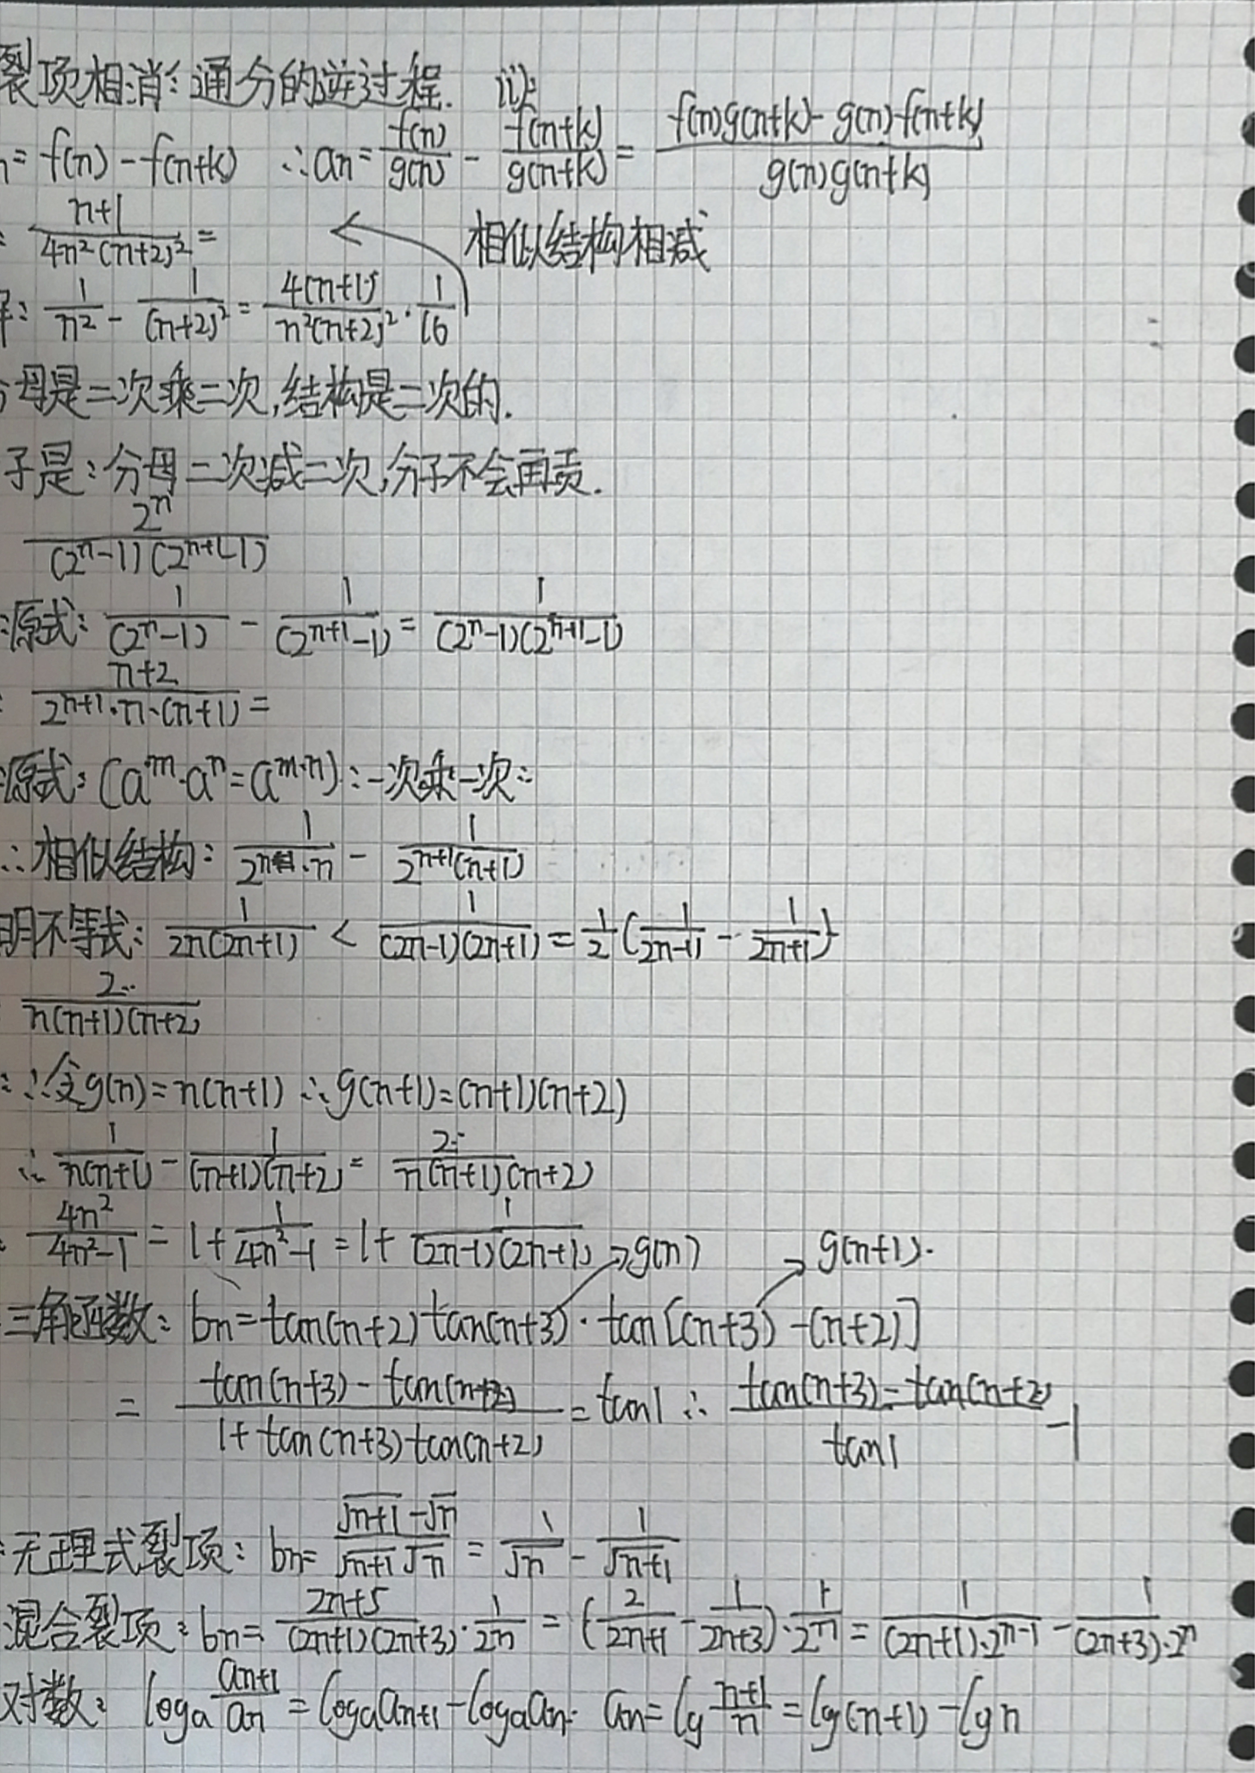 裂项相消:通分的逆过程. ii):
n=f(n)-f(n+k) ∴an=f(n)/g(n) - f(n+k)/g(n+k) = (f(n)g(n+k)-g(n)·f(n+k))/(g(n)g(n+k))
: (n+1)/(4n²(n+2)²) = ← 相似结构相减
: 1/n² - 1/(n+2)² = 4(n+1)/(n²(n+2)²) · 1/16
母是二次乘二次,结构是二次的.
子是:分母二次减二次,分子不会再
2ⁿ/((2ⁿ-1)(2ⁿ⁺¹-1))
:原式: 1/(2ⁿ-1) - 1/(2ⁿ⁺¹-1) = 1/((2ⁿ-1)(2ⁿ⁺¹-1))
: (n+2)/(2ⁿ⁺¹·n·(n+1)) =
:原式: (aᵐ·aⁿ=aᵐ·ⁿ)∵一次乘一次∵
∴相似结构: 1/(2ⁿ·n) - 1/(2ⁿ⁺¹(n+1))
明不等式: 1/(2n(2n+1)) < 1/((2n-1)(2n+1)) = 1/2(1/(2n-1) - 1/(2n+1))
2/(n(n+1)(n+2))
: ∴令g(n)=n(n+1) ∴g(n+1)=(n+1)(n+2)
∴ 1/(n(n+1)) - 1/((n+1)(n+2)) = 2/(n(n+1)(n+2))
: 4n²/(4n²-1) = 1+ 1/(4n²-1) = 1+ 1/((2n-1)(2n+1)) →g(n) →g(n+1).
三角函数: bn=tan(n+2)tan(n+3)·tan[(n+3)-(n+2)]
= (tan(n+3)-tan(n+2))/(1+tan(n+3)tan(n+2)) = tan1 ∴ (tan(n+3)-tan(n+2))/tan1 -1
:无理式裂项: bn= (√(n+1)-√n)/(√(n+1)√n) = 1/√n - 1/√(n+1)
混合裂项: bn= (2n+5)/((2n+1)(2n+3)) · 1/2ⁿ = (2/(2n+1) - 1/(2n+3))·1/2ⁿ = 1/((2n+1)·2ⁿ⁻¹) - 1/((2n+3)·2ⁿ)
对数: logₐ(an+1/an) = logₐan+1-logₐan. an=lg((n+1)/n)=lg(n+1)-lgn